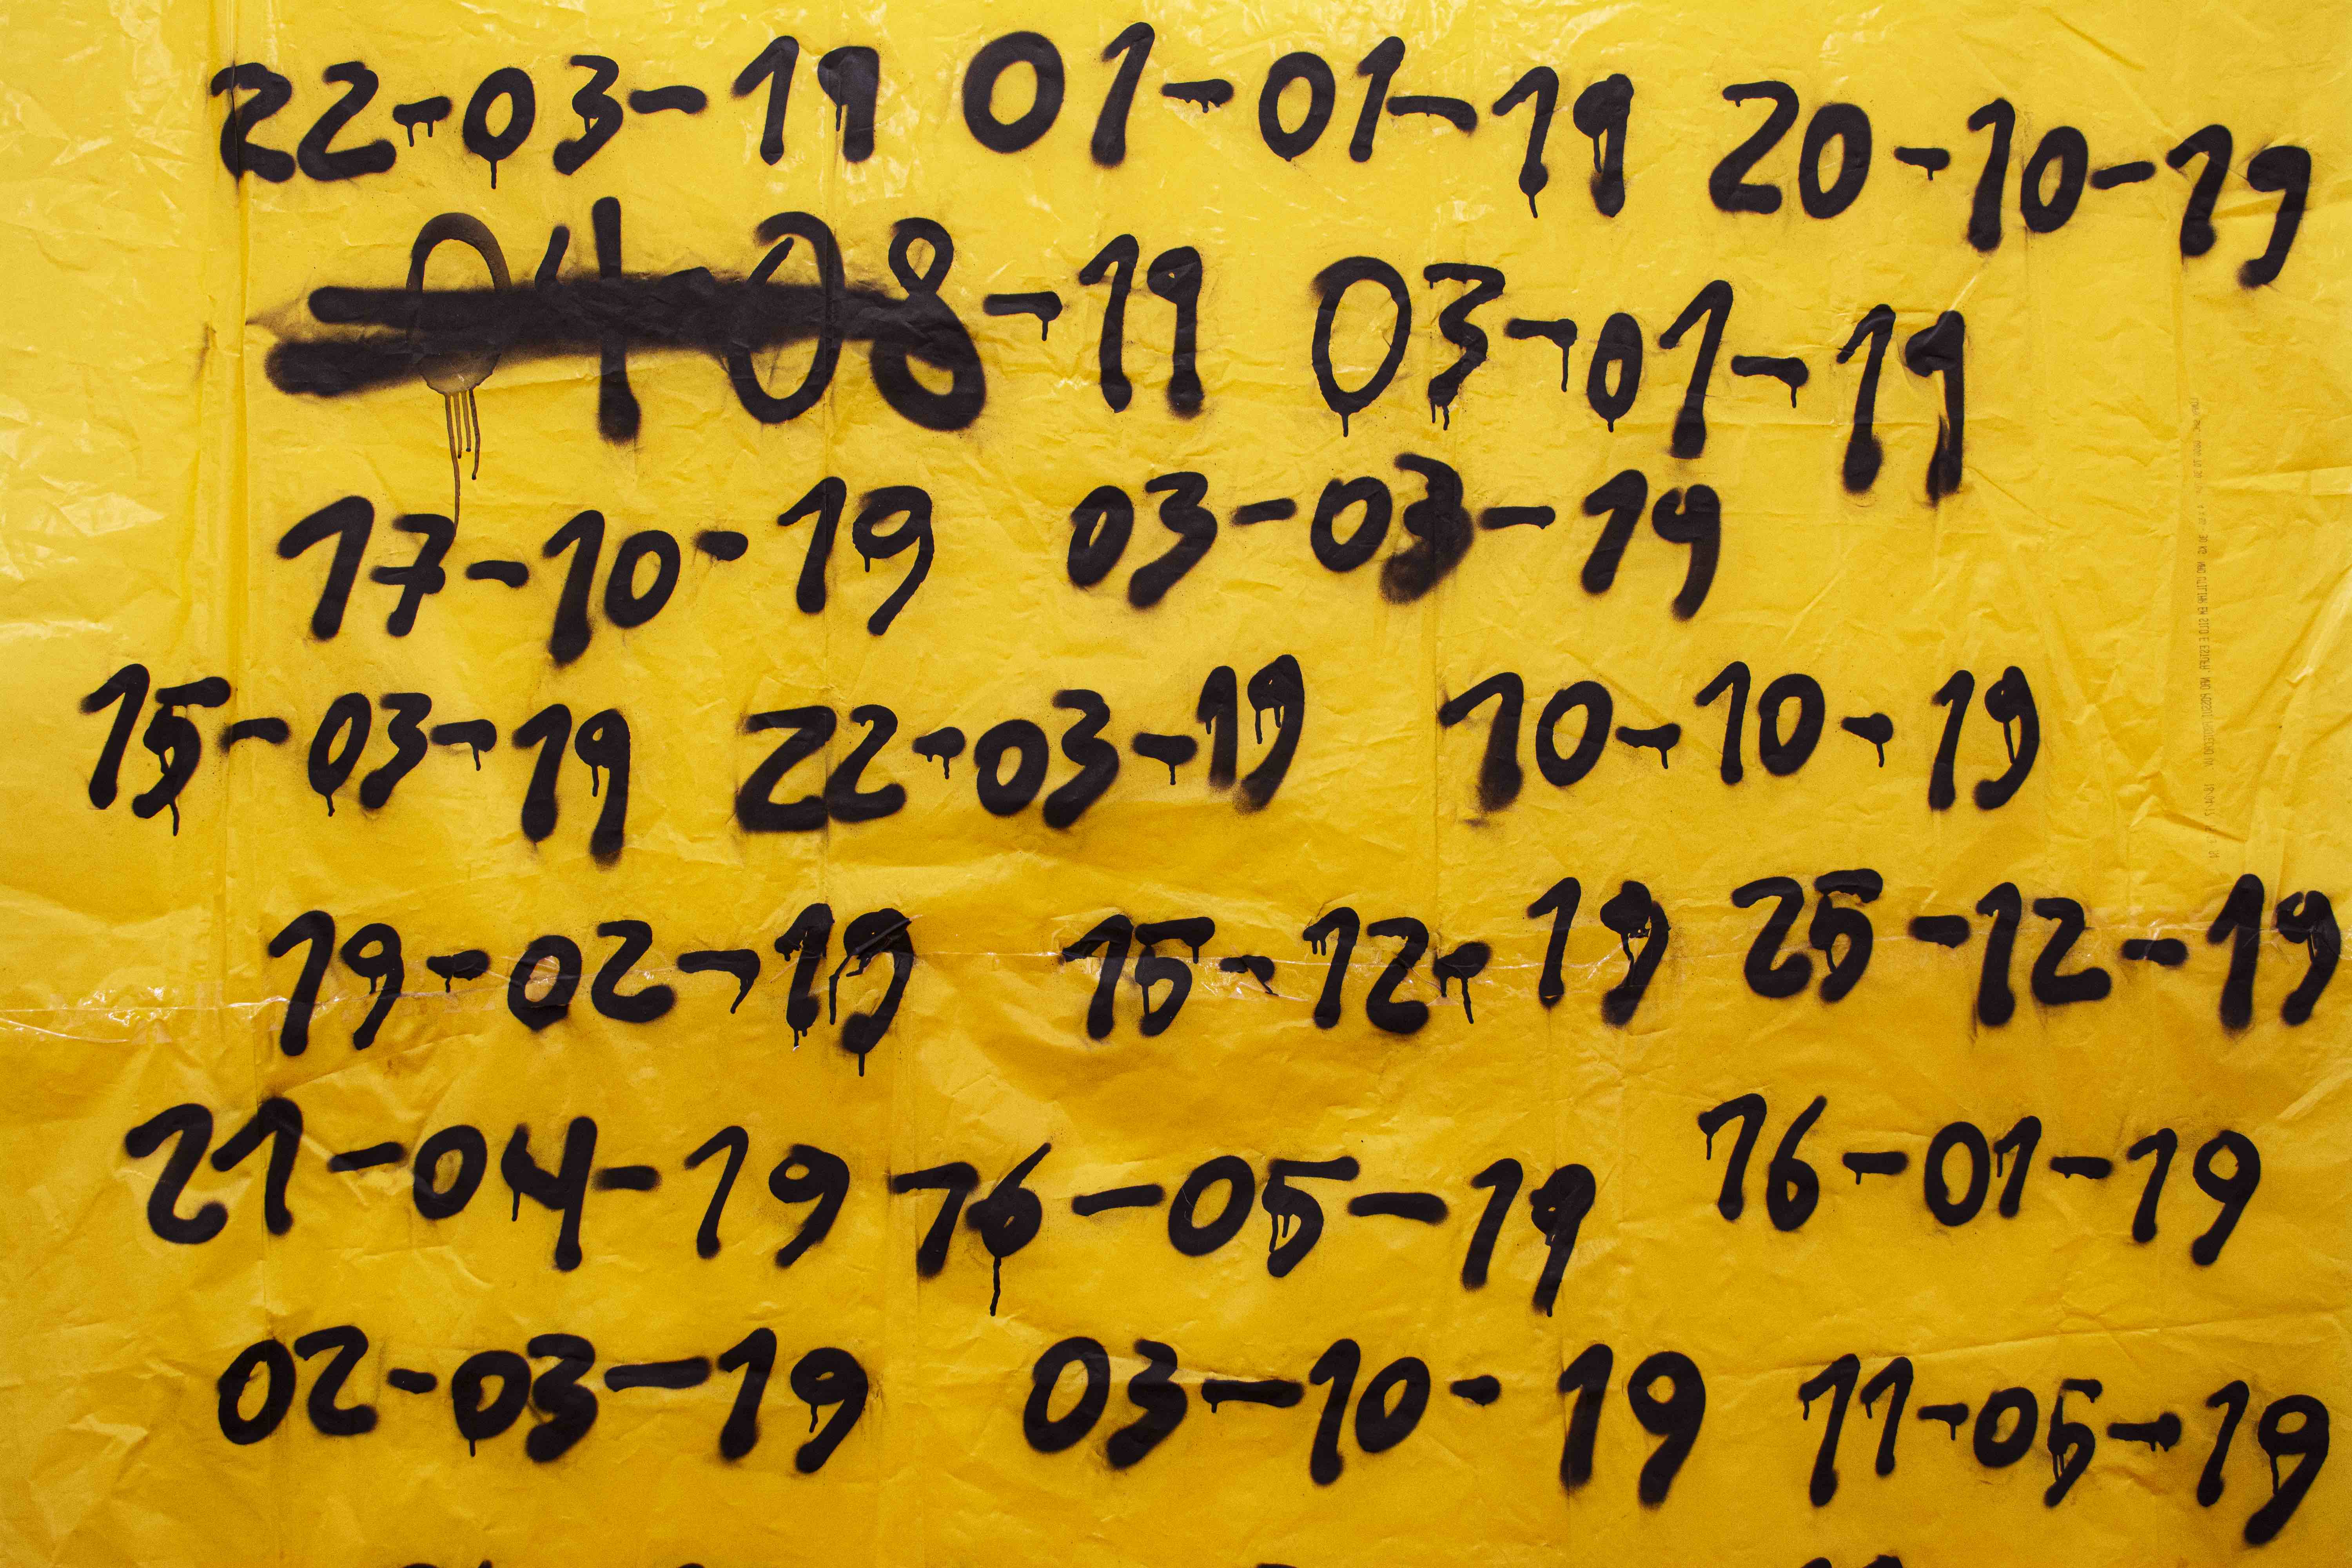 22-03-19 01-01-19 20-10-19
04-08-19 03-01-19
17-10-19 03-03-19
15-03-19 22-03-19 10-10-19
19-02-19 15-12-19 25-12-19
21-04-19 16-05-19 16-01-19
02-03-19 03-10-19 11-05-19